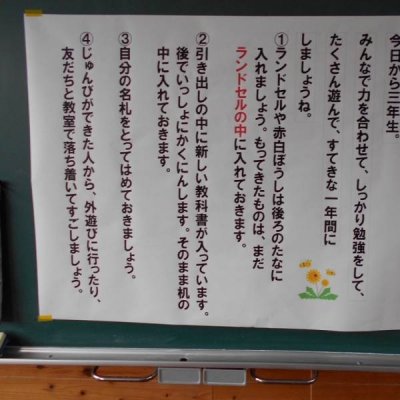 今日から三年生。
みんなで力を合わせて、しっかり勉強をして、
たくさん遊んで、すてきな一年間に
しましょうね。
①ランドセルや赤白ぼうしは後ろのたなに
入れましょう。もってきたものは、まだ
ランドセルの中に入れておきます。
②引き出しの中に新しい教科書が入っています。
後でいっしょにかくにんします。そのまま机の
中に入れておきます。
③自分の名札をとってはめておきましょう。
④じゅんびができた人から、外遊びに行ったり、
友だちと教室で落ち着いてすごしましょう。